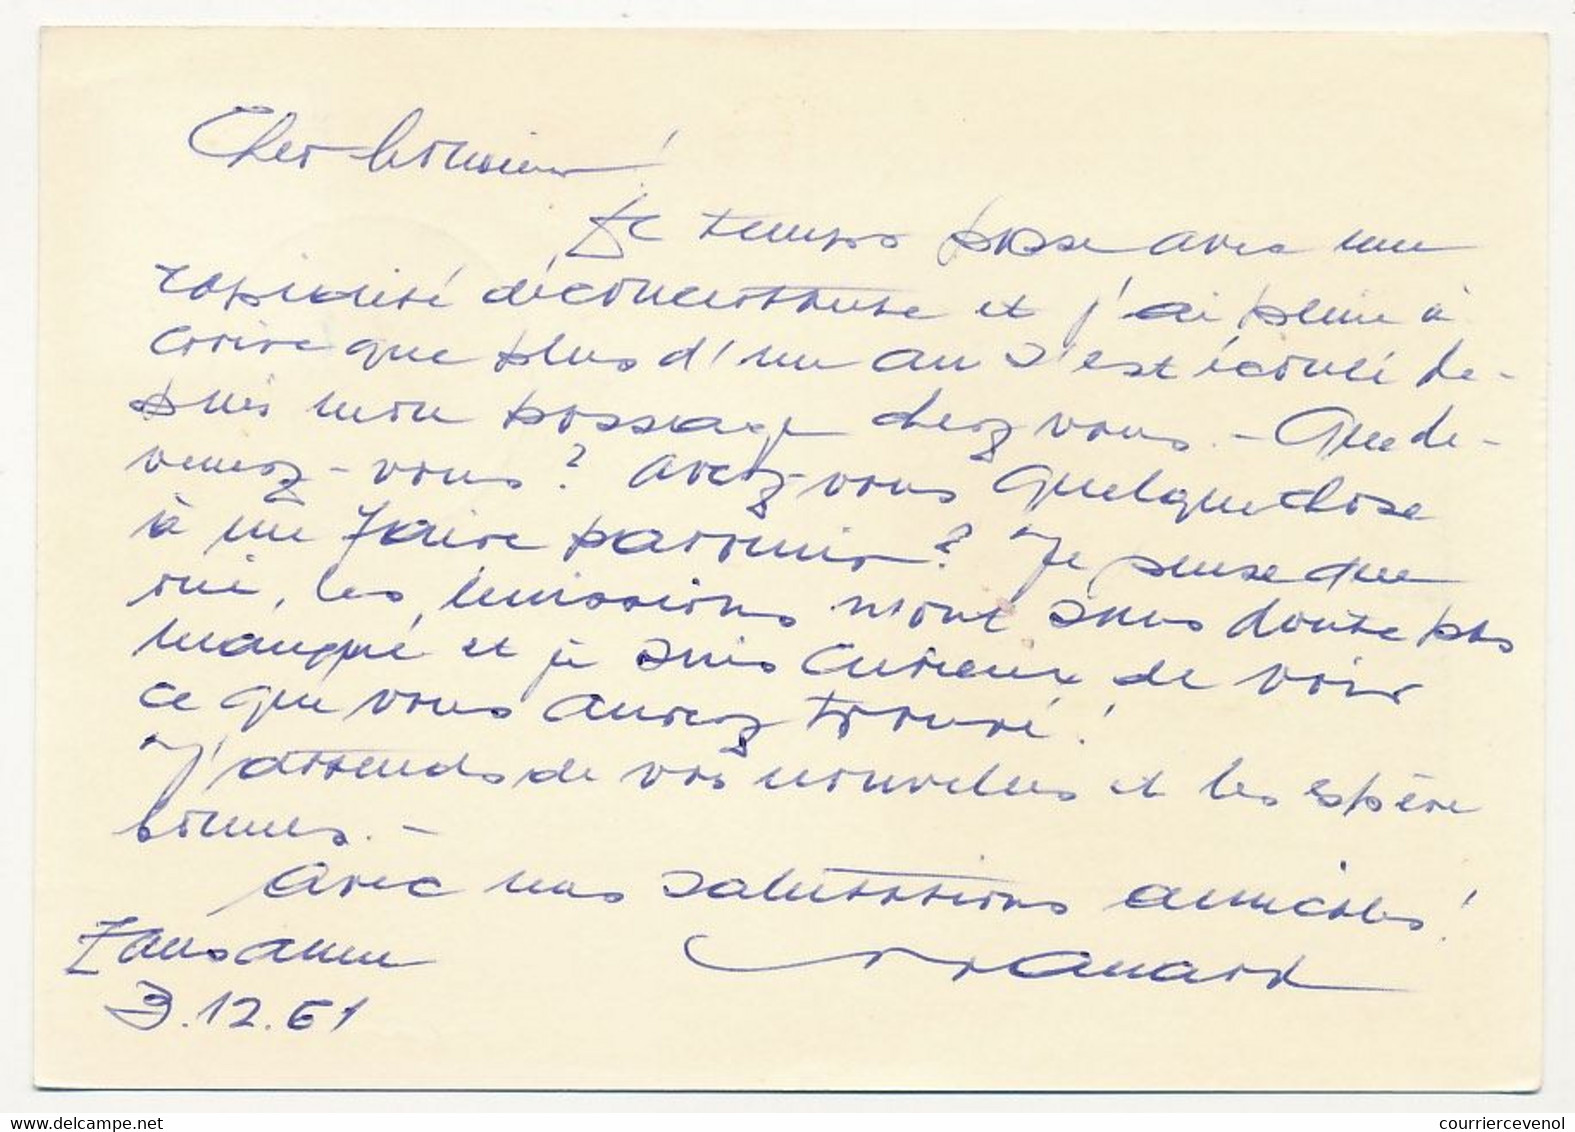 Cher Monsieur!
Le temps passe avec une
rapidité déconcertante et j'ai peine à
croire que plus d'un an s'est écoulé de-
puis mon passage chez vous. - Que de-
venez-vous? Avez-vous quelque chose
à me faire parvenir? Je pense que
oui, les émissions n'ont sans doute pas
manqué et je suis curieux de voir
ce que vous aurez trouvé!
J'attends de vos nouvelles et les espère
bonnes. -
Avec mes salutations amicales!
Lausanne
3.12.61
www.delcampe.net
courriercevenol